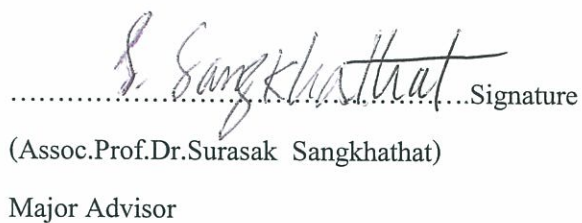 S. Sangkhathat
....................................................Signature
(Assoc.Prof.Dr.Surasak Sangkhathat)
Major Advisor